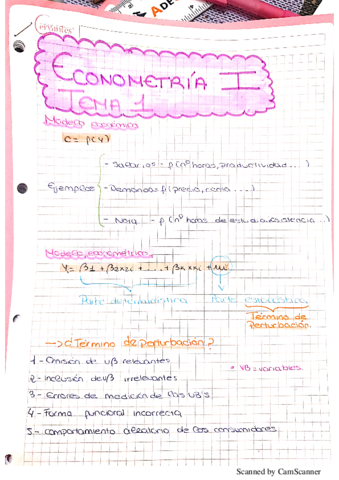 ECONOMETRÍA I
TEMA 1
Modelo económico
C = f(Y)
Ejemplos
- Salarios = f (nº horas, productividad ...)
- Demanda = f (precio, ...)
- Nota = f (nº horas de estudio, asistencia ...)
Modelo econométrico
Yi = β1 + β2x2i + .... + βkxki + ui
Parte
Parte
Término de
Perturbación
→ ¿Término de perturbación?
* VB = variables
1 - Omisión de VB relevantes
2 - Inclusión de VB irrelevantes
3 - Errores de medición de las VB's
4 - Forma funcional incorrecta
5 - comportamiento aleatorio de los consumidores
Scanned by CamScanner